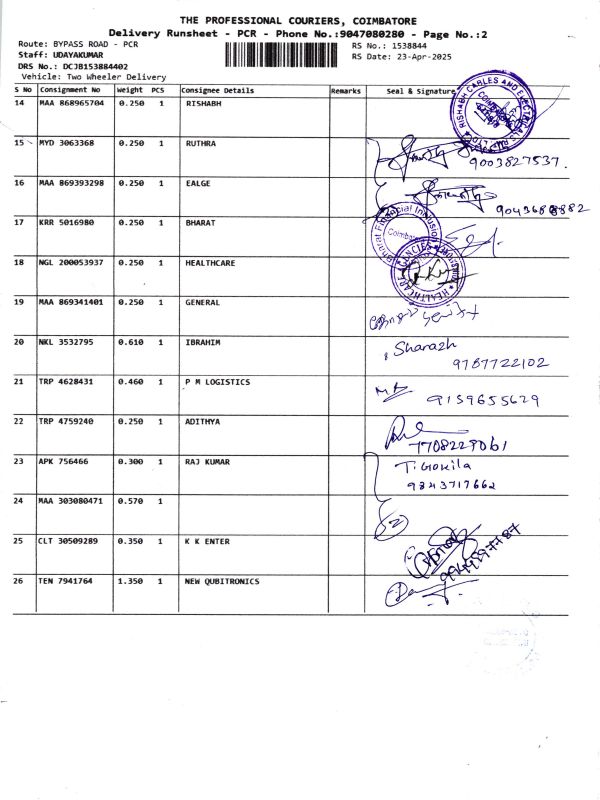 THE PROFESSIONAL COURIERS, COIMBATORE
Delivery Runsheet - PCR - Phone No.:9047080280 - Page No.:2
Route: BYPASS ROAD - PCR
Staff: UDAYAKUMAR
DRS No.: DCJB153884402
Vehicle: Two Wheeler Delivery
RS No.: 1538844
RS Date: 23-Apr-2025
S No Consignment No Weight PCS Consignee Details Remarks Seal & Signature
14 MAA 868965704 0.250 1 RISHABH
RISHABH CABLES AND ELECTRICALS
15 MYD 3063368 0.250 1 RUTHRA
9003827537.
16 MAA 869393298 0.250 1 EALGE
17 KRR 5016980 0.250 1 BHARAT
Bharat Financial Inclusion
Coimbatore
18 NGL 200053937 0.250 1 HEALTHCARE
HEALTHCARE
19 MAA 869341401 0.250 1 GENERAL
20 NKL 3532795 0.610 1 IBRAHIM
Sharazh
9787722102
21 TRP 4628431 0.460 1 P M LOGISTICS
9159655629
22 TRP 4759240 0.250 1 ADITHYA
7708229061
23 APK 756466 0.300 1 RAJ KUMAR
T. Gokila
9843717662
24 MAA 303080471 0.570 1
2
25 CLT 30509289 0.350 1 K K ENTER
26 TEN 7941764 1.350 1 NEW QUBITRONICS